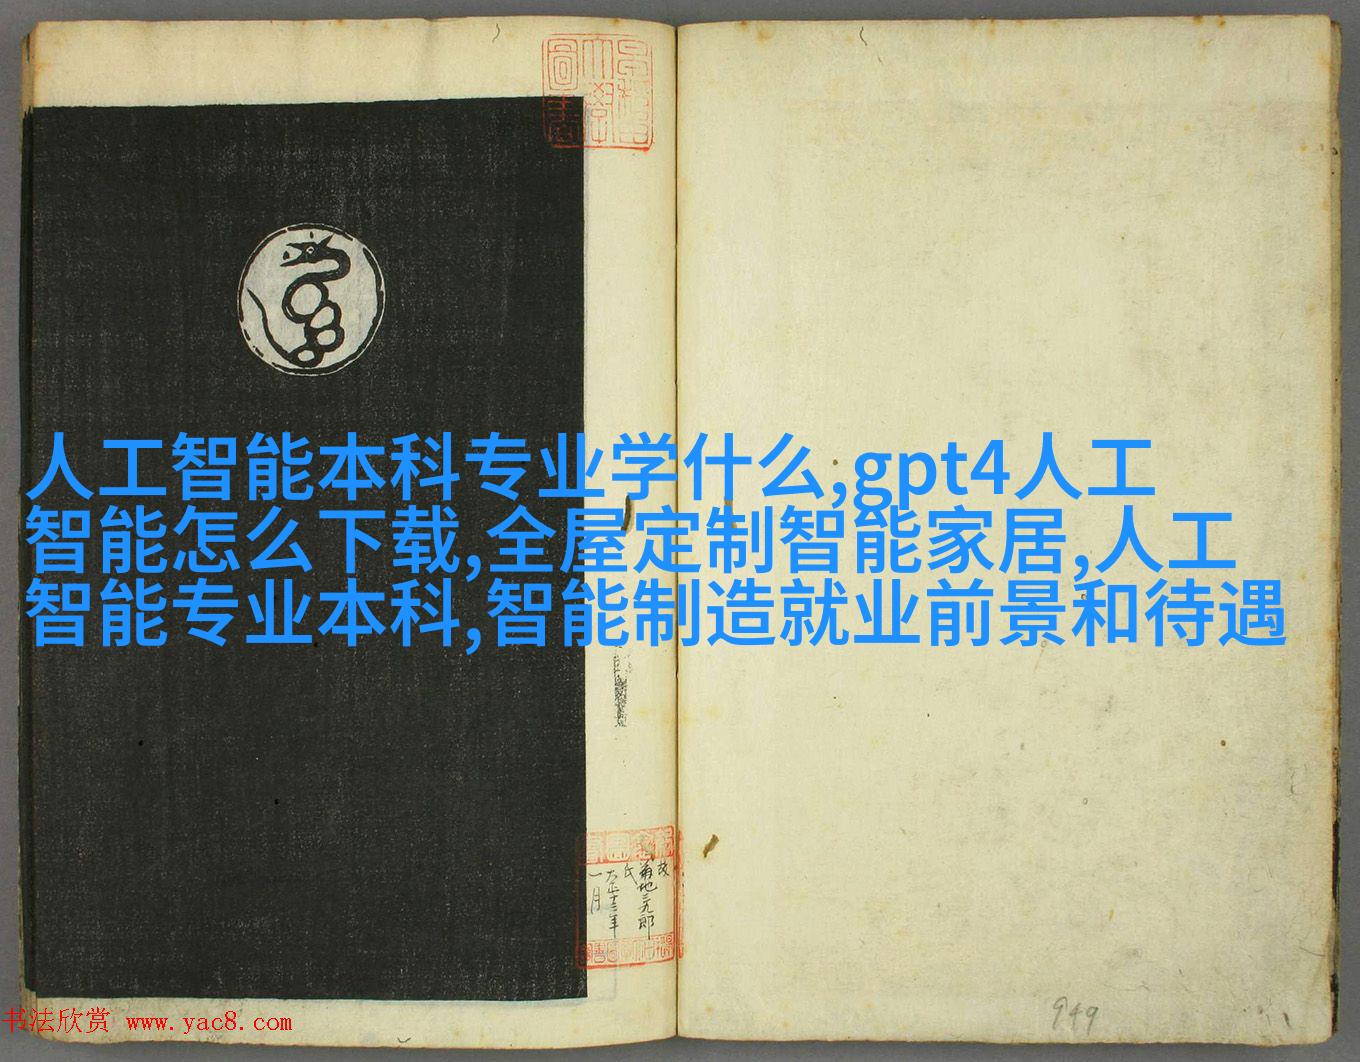 人工智能本科专业学什么,gpt4人工
智能怎么下载,全屋定制智能家居,人工
智能专业本科,智能制造就业前景和待遇
故
菊地三九郎
氏
大正十三年
一月
949
书法欣赏 www.yac8.com